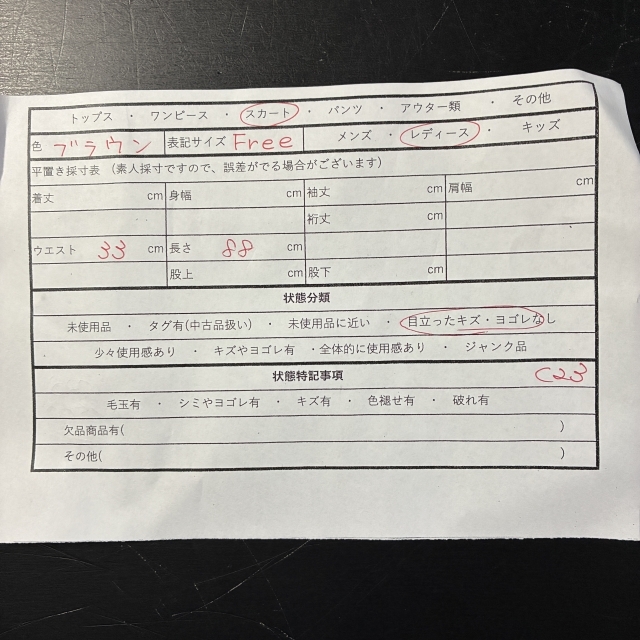 トップス ・ ワンピース ・ スカート ・ パンツ ・ アウター類 ・ その他
色 ブラウン 表記サイズ Free メンズ ・ レディース ・ キッズ
平置き採寸表 (素人採寸ですので、誤差がでる場合がございます)
着丈 cm 身幅 cm 袖丈 cm 肩幅 cm
裄丈 cm
ウエスト 33 cm 長さ 88 cm
股上 cm 股下 cm
状態分類
未使用品 ・ タグ有(中古品扱い) ・ 未使用品に近い ・ 目立ったキズ・ヨゴレなし
少々使用感あり ・ キズやヨゴレ有 ・全体的に使用感あり ・ ジャンク品
状態特記事項 C23
毛玉有 ・ シミやヨゴレ有 ・ キズ有 ・ 色褪せ有 ・ 破れ有
欠品商品有( )
その他( )